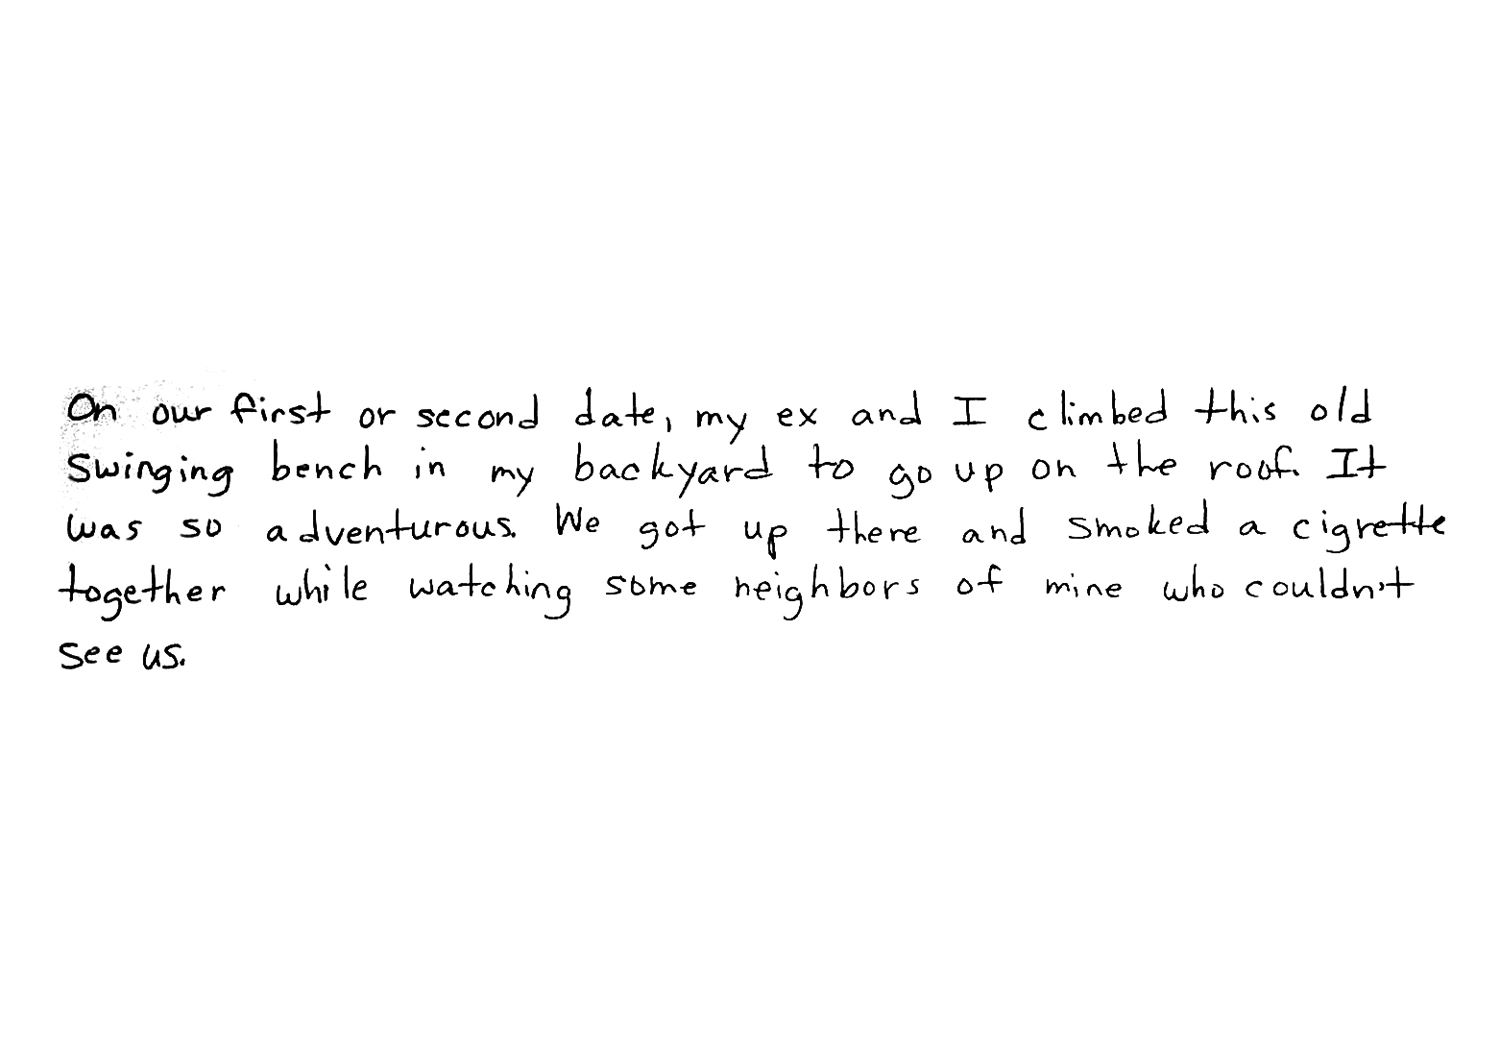 On our first or second date, my ex and I climbed this old
swinging bench in my backyard to go up on the roof. It
was so adventurous. We got up there and smoked a cigrette
together while watching some neighbors of mine who couldn't
see us.